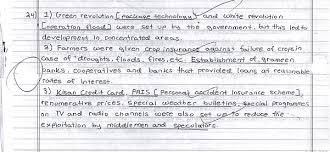 24) 1) Green revolution [package technology] and white revolution
[operation flood] were set up by the government. but this led to
development in concentrated areas.
2) Farmers were given crop insurance against failure of crops in
case of droughts, floods, fires, etc. Establishment of grameen
banks, cooperatives and banks that provided loans at reasonable
rates of interest.
3) Kisan Credit Card, PAIS [Personal accident insurance scheme],
renumerative prices, special weather bulletins, special programmes
on TV and radio channels were also set up to reduce the
exploitation by middlemen and speculators.